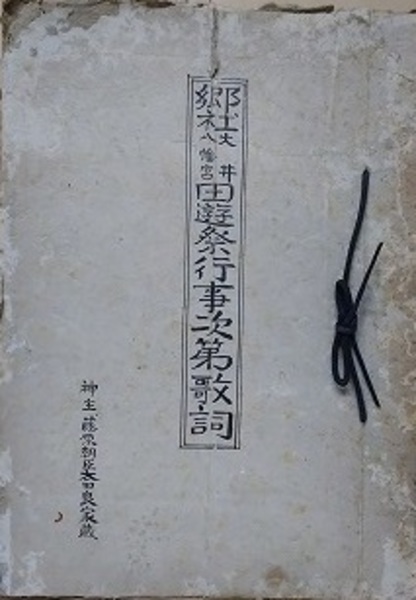 郷社
大井
八幡宮
田遊祭行事次第歌詞
神主藤原朝臣太田良 家蔵